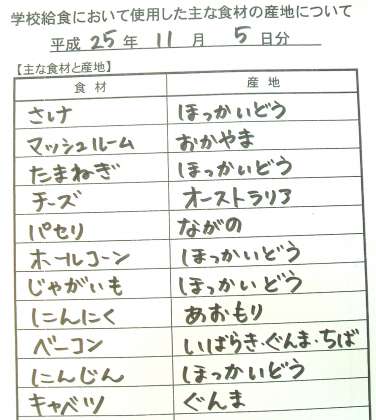 学校給食において使用した主な食材の産地について
平成 25 年 11 月 5 日分
【主な食材と産地】
食材 産地
さけ ほっかいどう
マッシュルーム おかやま
たまねぎ ほっかいどう
チーズ オーストラリア
パセリ ながの
ホールコーン ほっかいどう
じゃがいも ほっかいどう
にんにく あおもり
ベーコン いばらき・ぐんま・ちば
にんじん ほっかいどう
キャベツ ぐんま